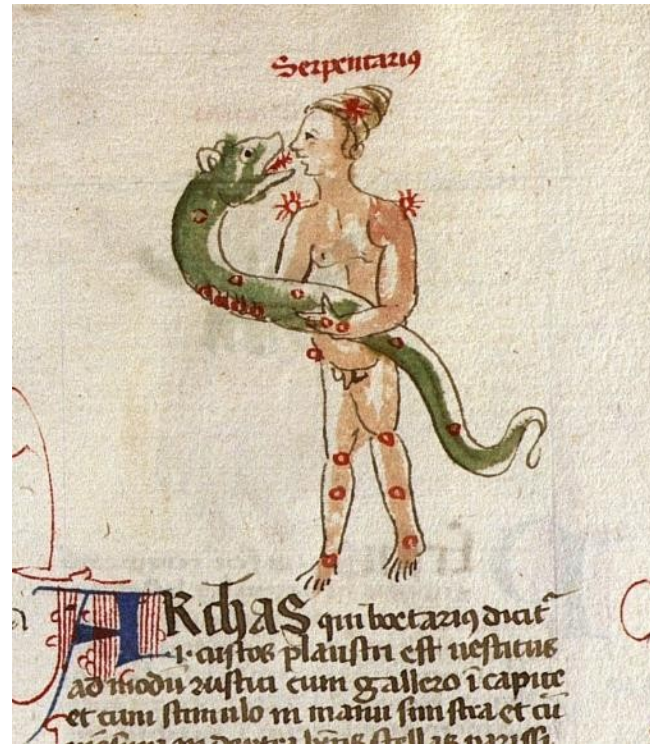 Serpentariꝯ
ARchAS qui boetariꝯ dicit̄
.i. custos plaustri est uestitus
ad modū rustici cum gallero ī capite
et cum stimulo in manu sinistra et cū
in dextra stellas